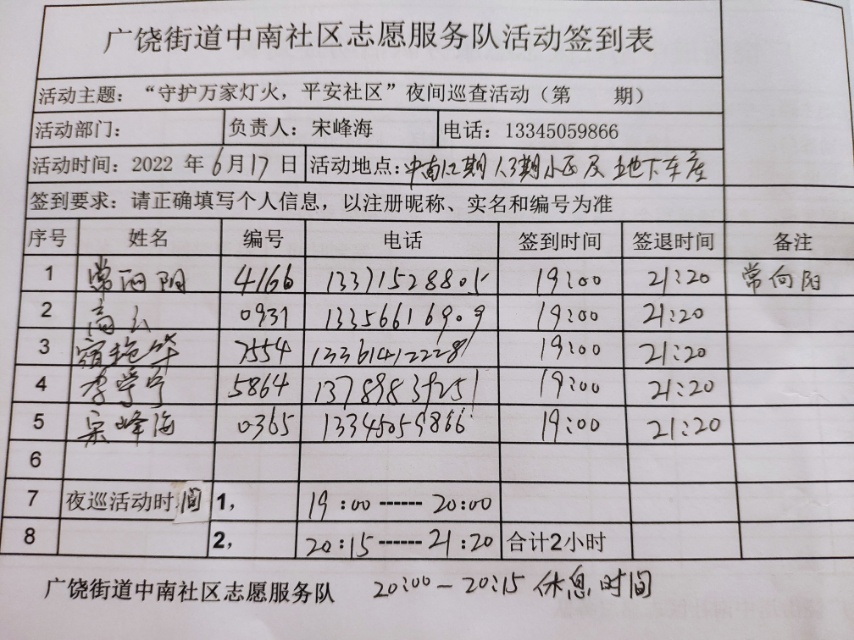 广饶街道中南社区志愿服务队活动签到表
活动主题：“守护万家灯火，平安社区”夜间巡查活动（第 期）
活动部门： 负责人：宋峰海 电话：13345059866
活动时间：2022 年 6月17 日 活动地点：中南 期 3期小区及地下车库
签到要求：请正确填写个人信息，以注册昵称、实名和编号为准
序号 姓名 编号 电话 签到时间 签退时间 备注
1 常向阳 4166 13371528805 19:00 21:20 常向阳
2 高云 0931 13356616909 19:00 21:20
3 宿艳华 7554 13361412228 19:00 21:20
4 李学宁 5864 13789839251 19:00 21:20
5 宋峰海 0365 13345059866 19:00 21:20
6
7 夜巡活动时间 1， 19:00 ------ 20:00
8 2， 20:15 ------ 21:20 合计2小时
广饶街道中南社区志愿服务队 20:00 — 20:15 休息时间